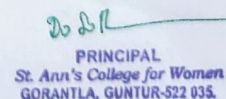 PRINCIPAL
St. Ann's College for Women
GORANTLA, GUNTUR-522 035.